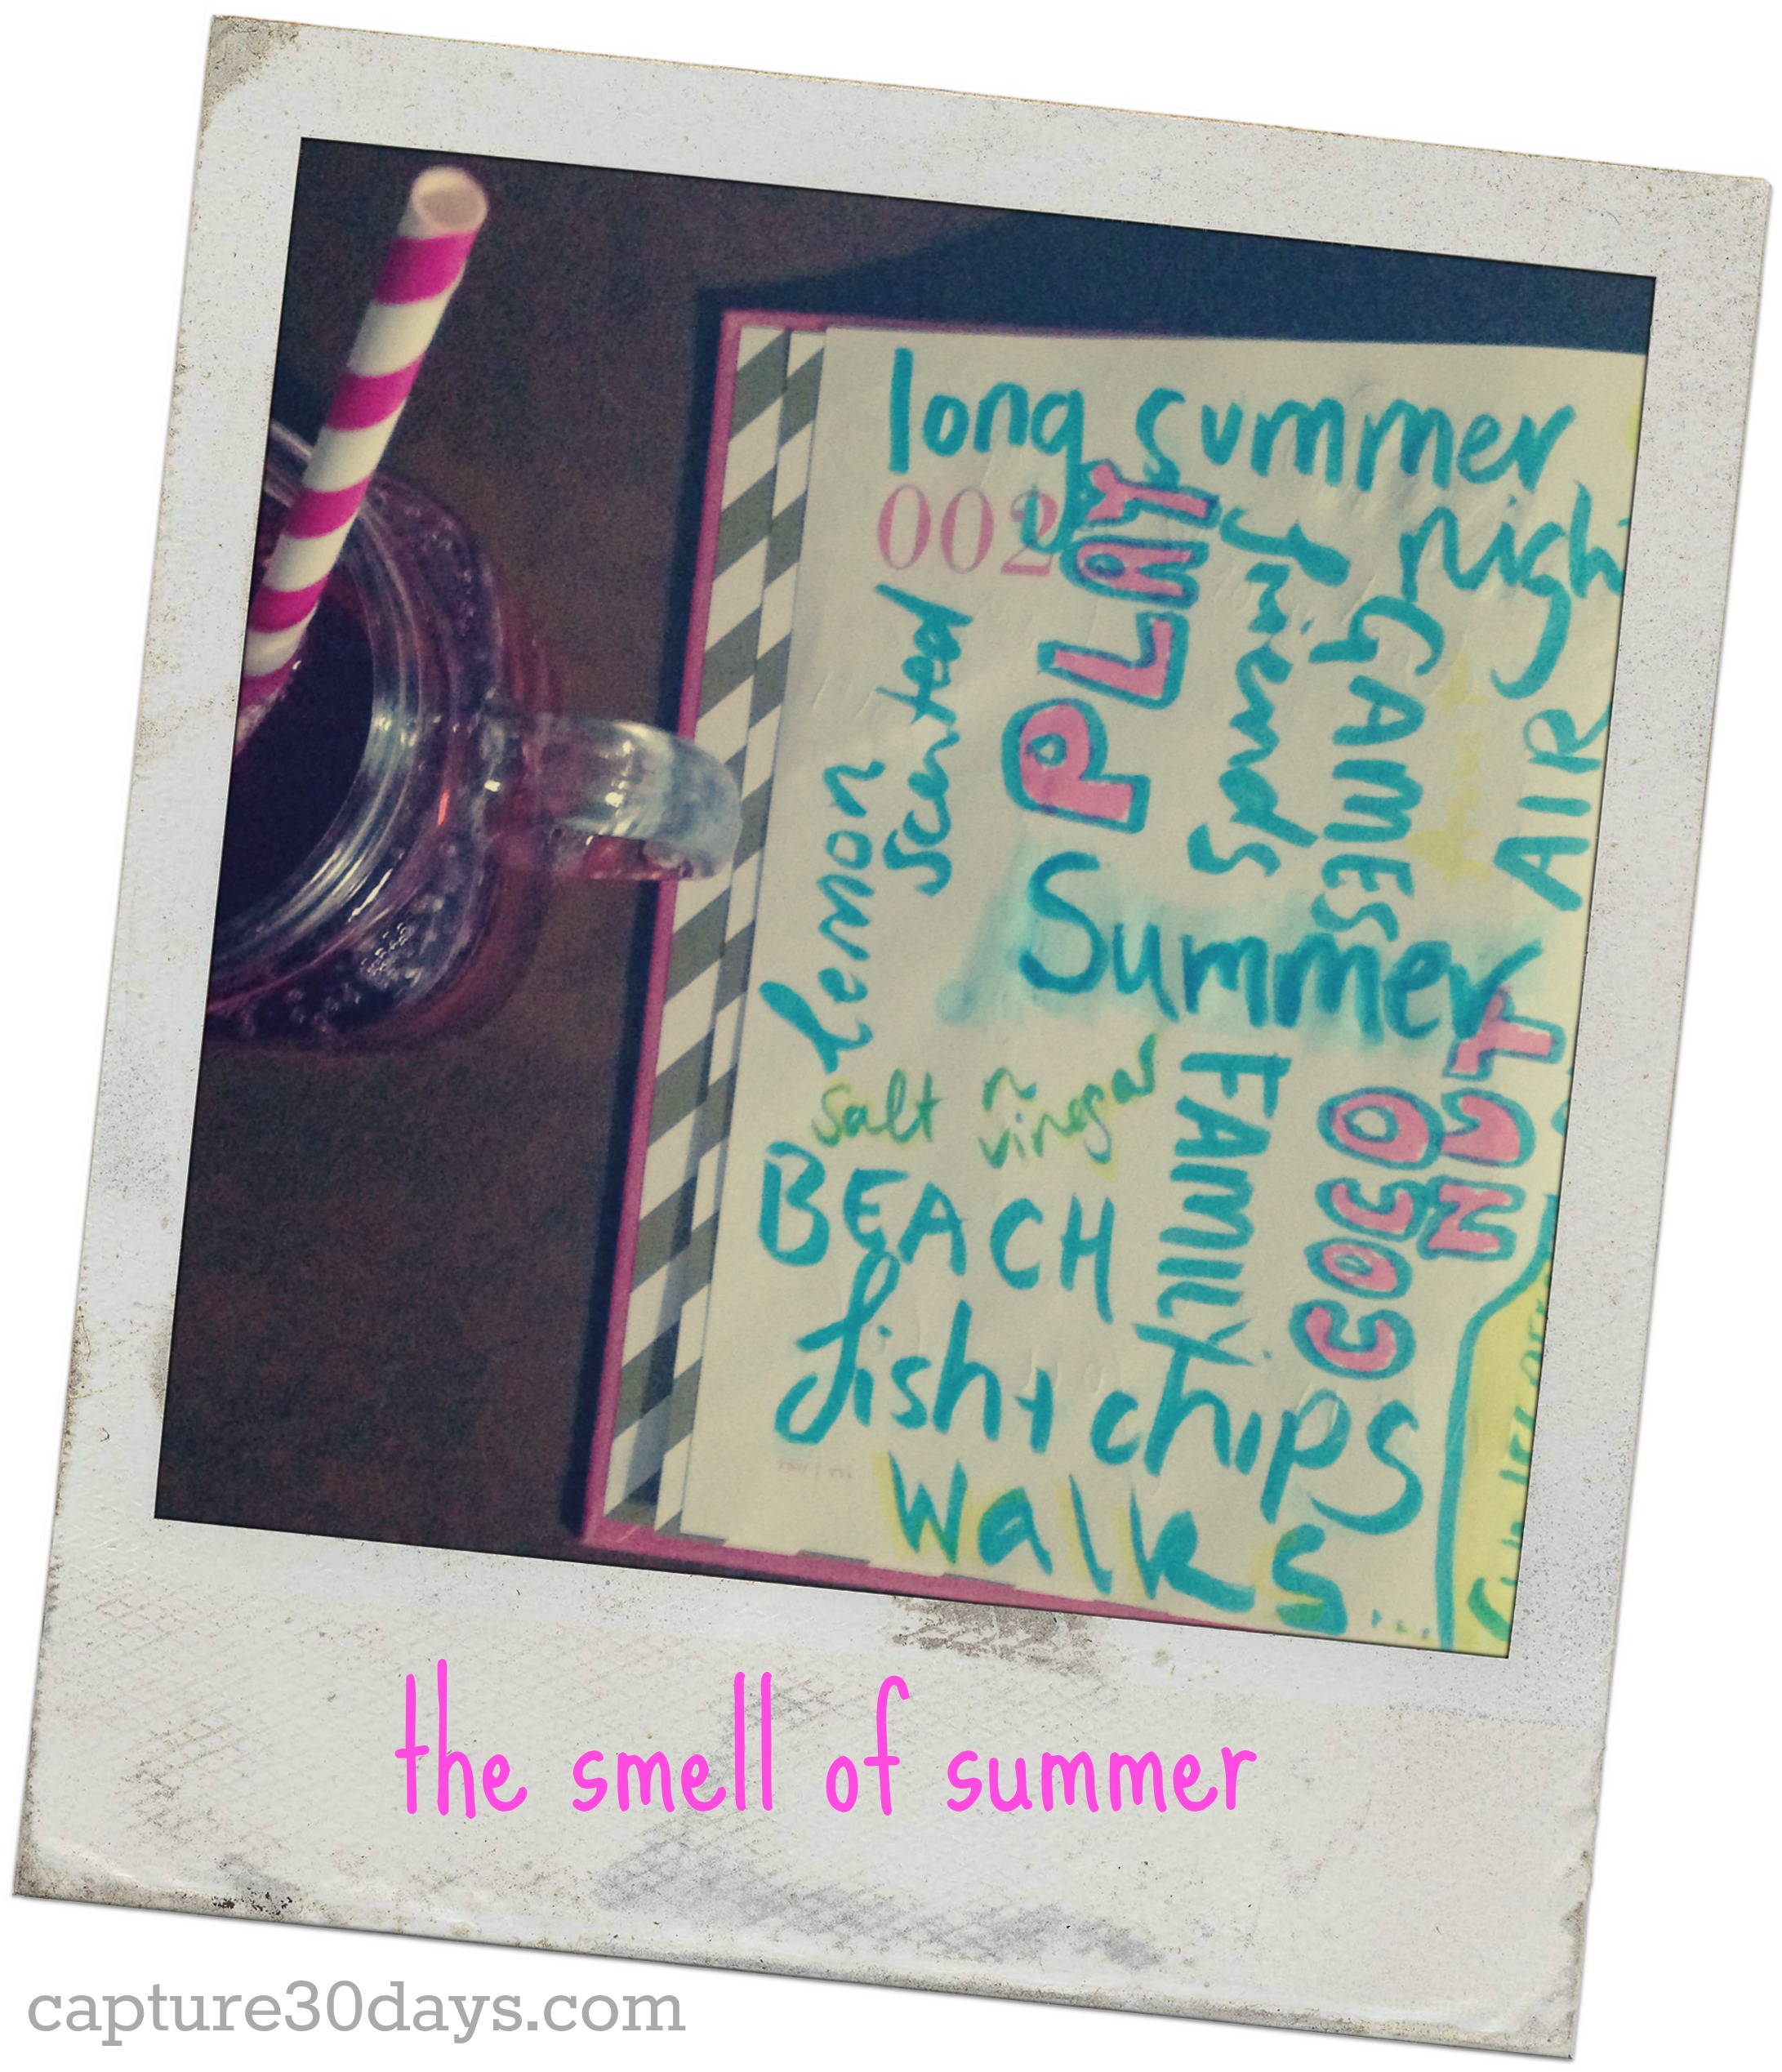 long summer
nigh
002
PLAY
friends
GAMES
AIR
lemon
scented
Summer
salt n
vinegar
BEACH
FAMILY
COCO
NUT
fish + chips
walks...
the smell of summer
capture30days.com